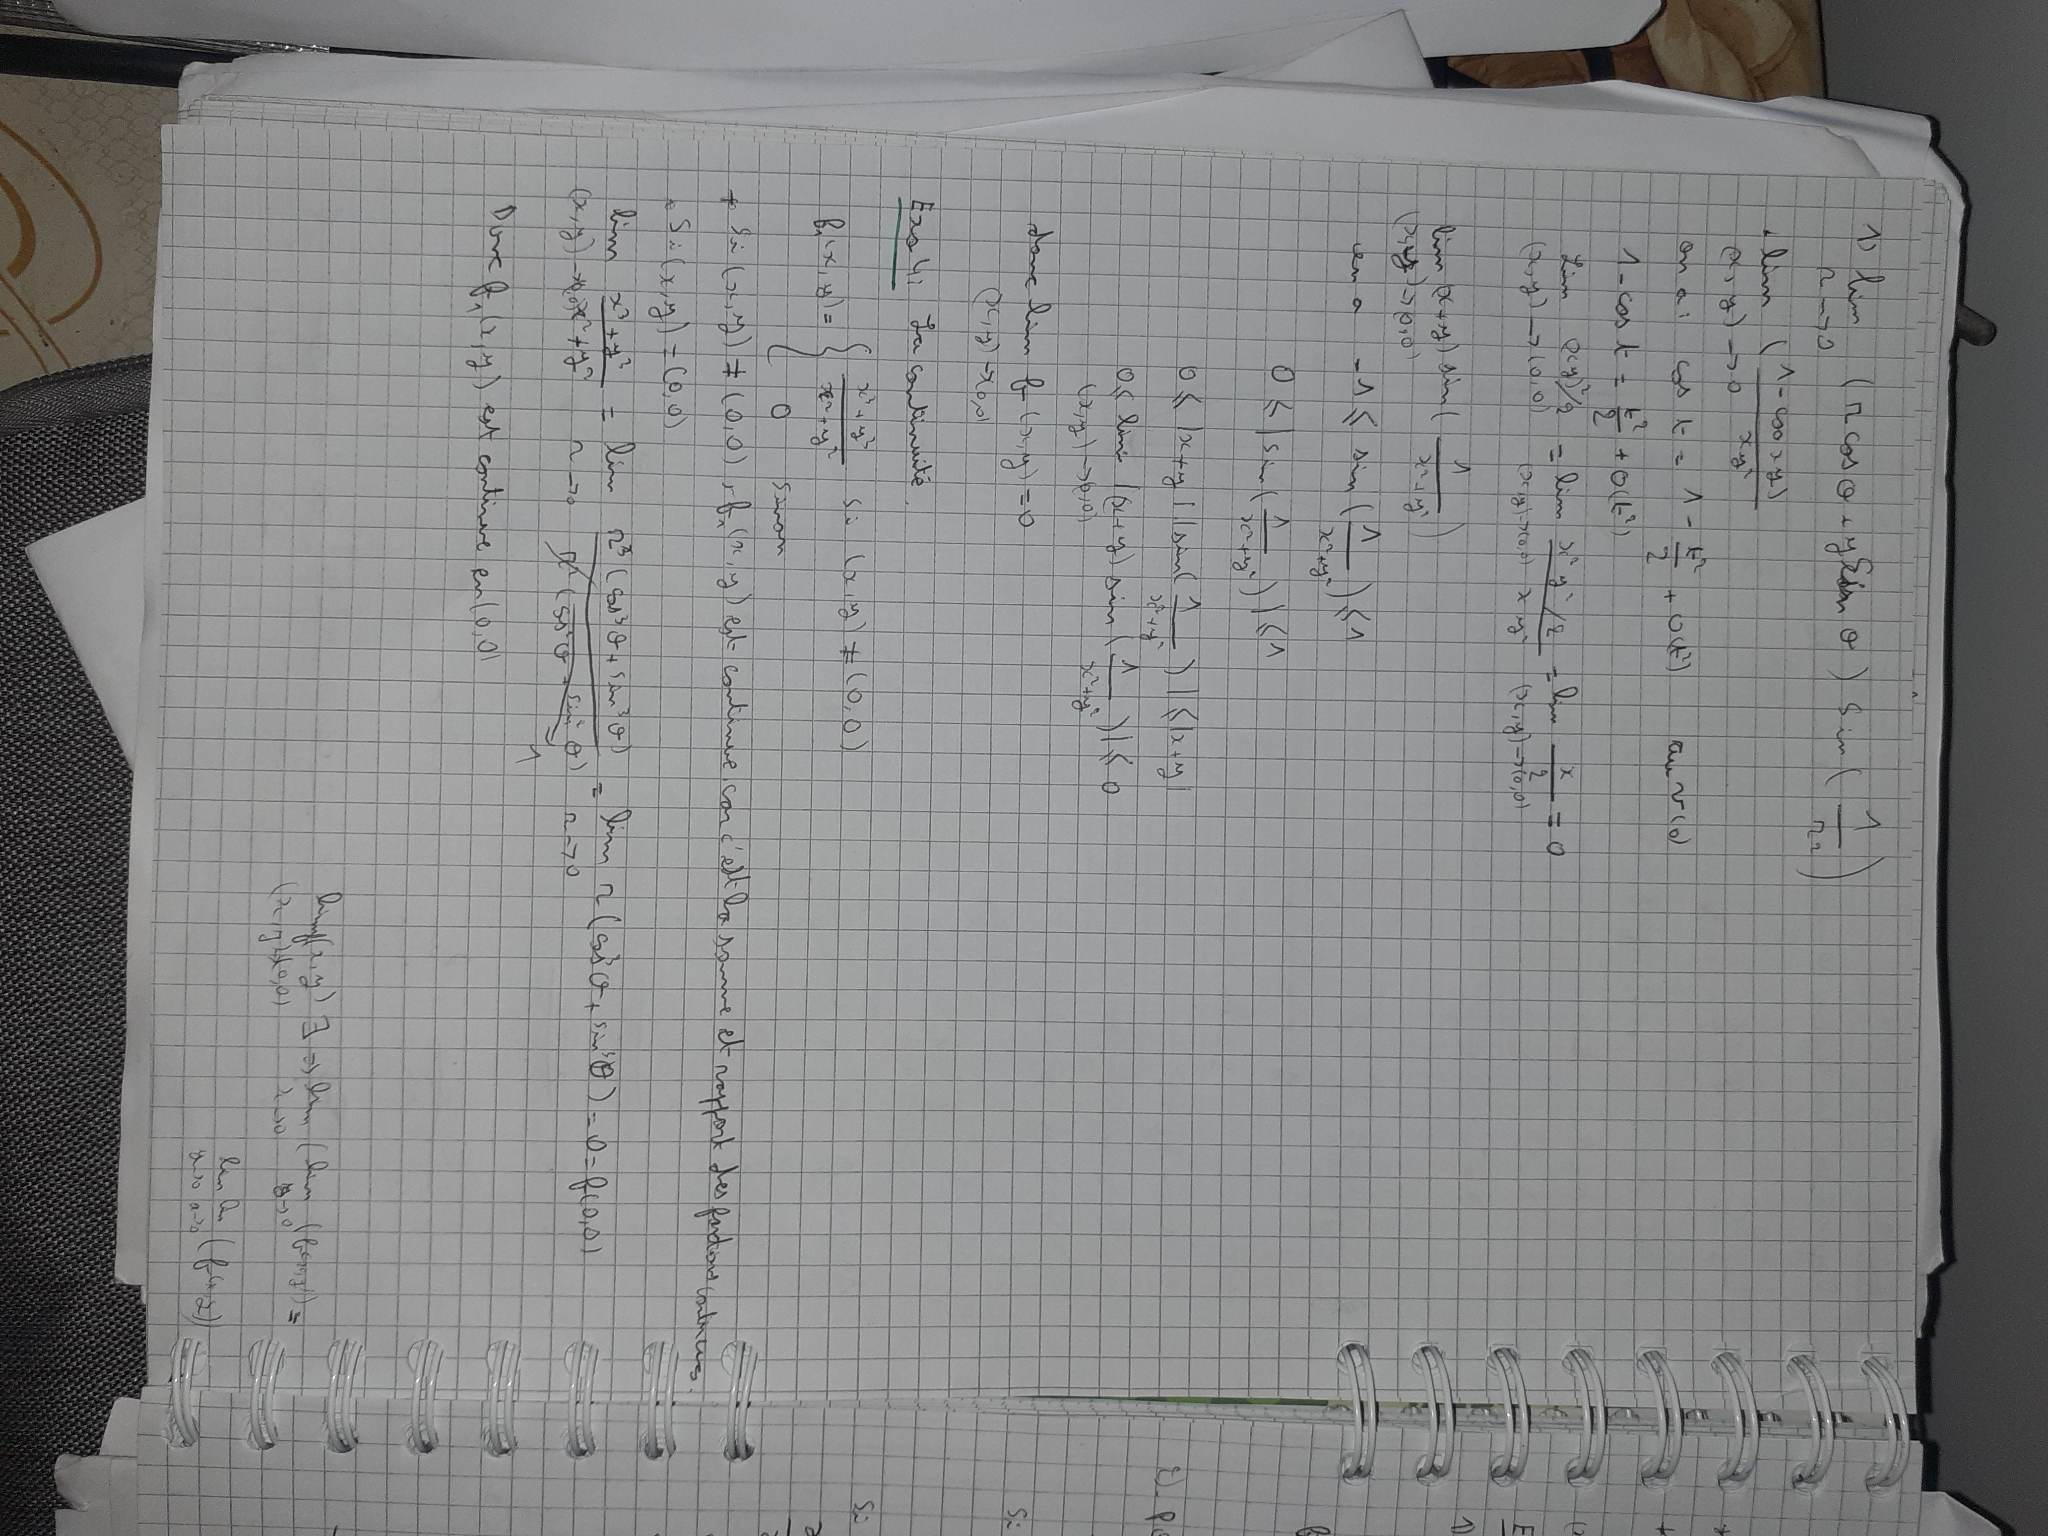 1) lim (r cos θ + y sin θ) sin( 1/r² )
r → 0
. lim (1 - cos xy)/xy²
(x, y) → 0
on a : cos t = 1 - t²/2 + o(t²) au v(0)
1 - cos t = t²/2 + o(t²)
Lim (xy)²/2 = lim x² y²/2 / x y² = lim x/2 = 0
(x, y) → (0,0) (x,y) → (0,0) (x, y) → (0,0)
lim (x+y) sin( 1/x²+y² )
(x,y) → (0,0)
on a -1 ≤ sin( 1/x²+y² ) ≤ 1
0 ≤ | sin( 1/x²+y² ) | ≤ 1
0 ≤ |x+y| |sin( 1/x²+y² ) | ≤ |x+y|
0 ≤ lim |(x+y) sin( 1/x²+y² )| ≤ 0
(x,y) → (0,0)
donc lim f (x,y) = 0
(x, y) → (0,0)
Exo 4: La continuité.
f₁(x, y) = { x³+y³/x²+y² si (x, y) ≠ (0,0)
0 sinon
+ Si (x, y) ≠ (0,0), f₁(x, y) est continue car c'est la somme et rapport des fonctions continues.
. Si (x, y) = (0,0)
lim x³+y³/x²+y² = lim r³ (cos³θ + sin³θ)/r² (cos²θ + sin²θ) = lim r (cos³θ + sin³θ) = 0 = f(0,0)
(x, y) → (0,0) r → 0 1 r → 0
Donc f₁(x, y) est continue en (0,0)
lim f(x, y) ∃ ⇒ lim ( lim (f(x,y)) =
(x, y) → (0,0) x → 0 y → 0
lim lim (f(x,y))
y → 0 x → 0